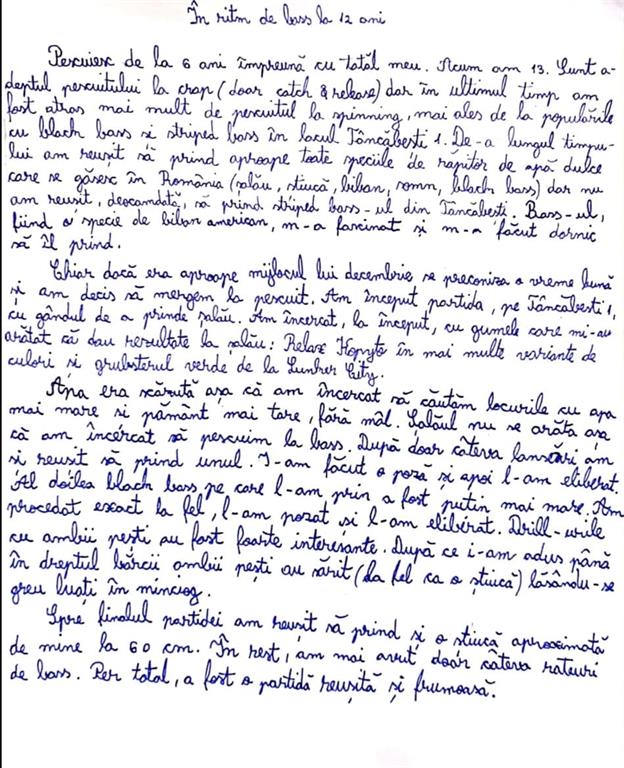 În ritm de bass la 12 ani
Pescuiesc de la 6 ani împreună cu tatăl meu. Acum am 13. Sunt a-
deptul pescuitului la crap (doar catch & release) dar în ultimul timp am
fost atras mai mult de pescuitul la spinning, mai ales de la populările
cu black bass si striped bass în lacul Tâncăbesti 1. De-a lungul timpu-
lui am reusit să prind aproape toate speciile de răpitor de apă dulce
care se găsesc în România (salău, stiucă, biban, somn, black bass) dar nu
am reusit, deocamdată, să prind striped bass-ul din Tâncăbesti. Bass-ul,
fiind o specie de biban american, m-a fascinat și m-a făcut dornic
să îl prind.
Chiar dacă era aproape mijlocul lui decembrie, se preconiza o vreme bună
și am decis să mergem la pescuit. Am început partida, pe Tâncăbesti 1,
cu gândul de a prinde șalău. Am încercat, la început, cu gumele care mi-au
arătat că dau rezultate la șalău: Relax Kopyto în mai multe variante de
culori si grubsterul verde de la Lunker City.
Apa era scăzută asa că am încercat să căutăm locurile cu apa
mai mare si pământ mai tare, fără mâl. Șalăul nu se arăta așa
că am încercat să pescuim la bass. După doar câteva lansări am
si reusit să prind unul. I-am făcut o poză și apoi l-am eliberat.
Al doilea black bass pe care l-am prin a fost putin mai mare. Am
procedat exact la fel, l-am pozat și l-am eliberat. Drill-urile
cu ambii pesti au fost foarte interesante. După ce i-am adus până
în dreptul bărcii ambii pești au sărit (la fel ca o știucă) lăsându-se
greu luați în minciog.
Spre finalul partidei am reușit să prind si o stiucă aproximată
de mine la 60 cm. În rest, am mai avut doar câteva rateuri
de bass. Per total, a fost o partidă reușită și frumoasă.